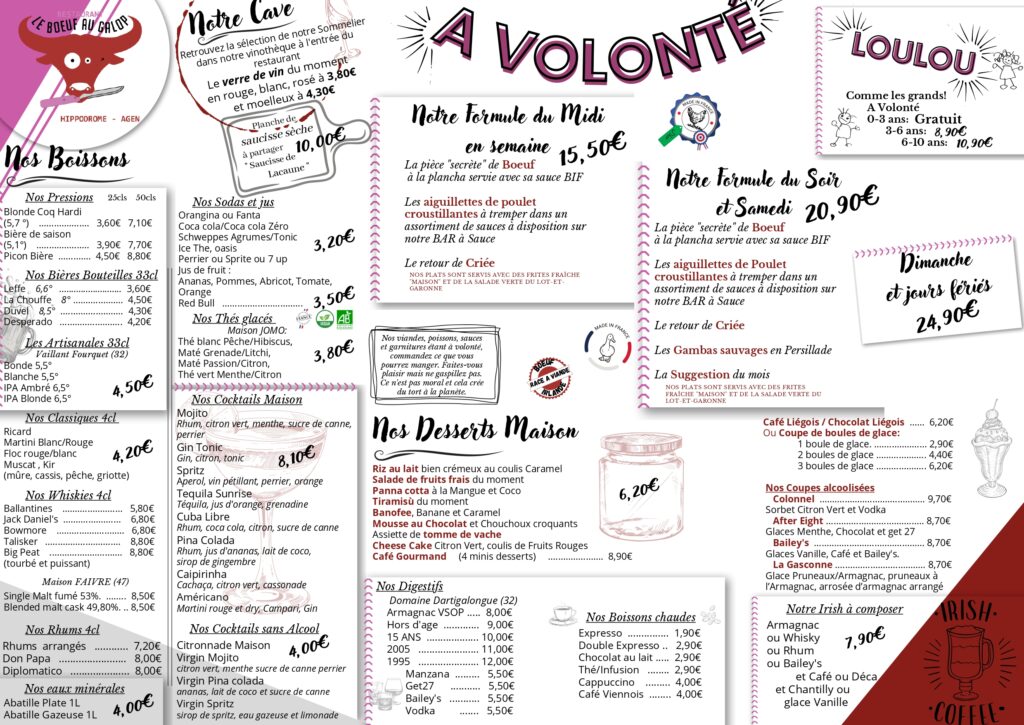 RESTAURANT
LE BOEUF AU GALOP
HIPPODROME - AGEN
Notre Cave
Retrouvez la sélection de notre Sommelier
dans notre vinothèque à l'entrée du
restaurant
Le verre de vin du moment
en rouge, blanc, rosé à 3,80€
et moelleux à 4,30€
Planche de
saucisse sèche
à partager 10,00€
" Saucisse de
Lacaune "
Nos Boissons
Nos Pressions 25cls 50cls
Blonde Coq Hardi
(5,7 °) ..................... 3,60€ 7,10€
Bière de saison
(5,1°) ..................... 3,90€ 7,70€
Picon Bière ............ 4,50€ 8,80€
Nos Bières Bouteilles 33cl
Leffe 6,6° ..................... 3,60€
La Chouffe 8° ................ 4,50€
Duvel 8,5° ................... 4,30€
Desperado ..................... 4,20€
Les Artisanales 33cl
Vaillant Fourquet (32)
Bonde 5,5°
Blanche 5,5°
IPA Ambré 6,5° 4,50€
IPA Blonde 6,5°
Nos Classiques 4cl
Ricard
Martini Blanc/Rouge
Floc rouge/blanc 4,20€
Muscat , Kir
(mûre, cassis, pêche, griotte)
Nos Whiskies 4cl
Ballantines ................ 5,80€
Jack Daniel's ............... 6,80€
Bowmore ................... 6,80€
Talisker ................... 8,80€
Big Peat ................... 8,80€
(tourbé et puissant)
Maison FAIVRE (47)
Single Malt fumé 53%. ....... 8,50€
Blended malt cask 49,80%. .. 8,50€
Nos Rhums 4cl
Rhums arrangés ............ 7,20€
Don Papa ................... 8,00€
Diplomatico ................... 8,00€
Nos eaux minérales
Abatille Plate 1L
Abatille Gazeuse 1L 4,00€
Nos Sodas et jus
Orangina ou Fanta
Coca cola/Coca cola Zéro
Schweppes Agrumes/Tonic
Ice The, oasis 3,20€
Perrier ou Sprite ou 7 up
Jus de fruit :
Ananas, Pommes, Abricot, Tomate,
Orange
Red Bull ..................... 3,50€
Nos Thés glacés
Maison JOMO:
AB
Thé blanc Pêche/Hibiscus,
Maté Grenade/Litchi,
Maté Passion/Citron, 3,80€
Thé vert Menthe/Citron
Nos Cocktails Maison
Mojito
Rhum, citron vert, menthe, sucre de canne,
perrier
Gin Tonic
Gin, citron, tonic 8,10€
Spritz
Aperol, vin pétillant, perrier, orange
Tequila Sunrise
Téquila, jus d'orange, grenadine
Cuba Libre
Rhum, coca cola, citron, sucre de canne
Pina Colada
Rhum, jus d'ananas, lait de coco,
sirop de gingembre
Caipirinha
Cachaça, citron vert, cassonade
Américano
Martini rouge et dry, Campari, Gin
Nos Cocktails sans Alcool
Citronnade Maison 4,00€
Virgin Mojito
citron vert, menthe sucre de canne perrier
Virgin Pina colada
ananas, lait de coco et sucre de canne
Virgin Spritz
sirop de spritz, eau gazeuse et limonade
A VOLONTÉ
Notre Formule du Midi
en semaine 15,50€
La pièce "secrète" de Boeuf
à la plancha servie avec sa sauce BIF
Les aiguillettes de poulet
croustillantes à tremper dans un
assortiment de sauces à disposition sur
notre BAR à Sauce
Le retour de Criée
NOS PLATS SONT SERVIS AVEC DES FRITES FRAÎCHE
"MAISON" ET DE LA SALADE VERTE DU LOT-ET-
GARONNE
MADE IN FRANCE
Notre Formule du Soir
et Samedi 20,90€
La pièce "secrète" de Boeuf
à la plancha servie avec sa sauce BIF
Les aiguillettes de Poulet
croustillantes à tremper dans un
assortiment de sauces à disposition sur
notre BAR à Sauce
Le retour de Criée
Les Gambas sauvages en Persillade
La Suggestion du mois
NOS PLATS SONT SERVIS AVEC DES FRITES
FRAÎCHE "MAISON" ET DE LA SALADE VERTE DU
LOT-ET-GARONNE
LOULOU
Comme les grands!
A Volonté
0-3 ans: Gratuit
3-6 ans: 8,90€
6-10 ans: 10,90€
Dimanche
et jours fériés
24,90€
Nos viandes, poissons, sauces
et garnitures étant à volonté,
commandez ce que vous
pourrez manger. Faites-vous
plaisir mais ne gaspillez pas.
Ce n'est pas moral et cela crée
du tort à la planète.
MADE IN FRANCE
BOEUF
RACE A VIANDE
IRLANDE
Nos Desserts Maison
Riz au lait bien crémeux au coulis Caramel
Salade de fruits frais du moment
Panna cotta à la Mangue et Coco
Tiramisù du moment
Banofee, Banane et Caramel
Mousse au Chocolat et Chouchoux croquants
Assiette de tomme de vache
Cheese Cake Citron Vert, coulis de Fruits Rouges
Café Gourmand (4 minis desserts) ....................... 8,90€
6,20€
Café Liégois / Chocolat Liégois ...... 6,20€
Ou Coupe de boules de glace:
1 boule de glace. ..................... 2,90€
2 boules de glace .................... 4,40€
3 boules de glace .................... 6,20€
Nos Coupes alcoolisées
Colonnel ............................ 9,70€
Sorbet Citron Vert et Vodka
After Eight ........................... 8,70€
Glaces Menthe, Chocolat et get 27
Bailey's ............................... 8,70€
Glaces Vanille, Café et Bailey's.
La Gasconne ....................... 8,70€
Glace Pruneaux/Armagnac, pruneaux à
l'Armagnac, arrosée d'armagnac arrangé
Nos Digestifs
Domaine Dartigalongue (32)
Armagnac VSOP ..... 8,00€
Hors d'age ............. 9,00€
15 ANS ................. 10,00€
2005 .................... 11,00€
1995 .................... 12,00€
Manzana ........ 5,50€
Get27 .......... 5,50€
Bailey's .......... 5,50€
Vodka ....... 5,50€
Nos Boissons chaudes
Expresso ................. 1,90€
Double Expresso .. 2,90€
Chocolat au lait ..... 2,90€
Thé/Infusion ........ 2,80€
Cappuccino ........ 4,00€
Café Viennois ..... 4,00€
Notre Irish à composer
Armagnac
ou Whisky 7,90€
ou Rhum
ou Bailey's
et Café ou Déca
et Chantilly ou
glace Vanille
IRISH
COFFEE